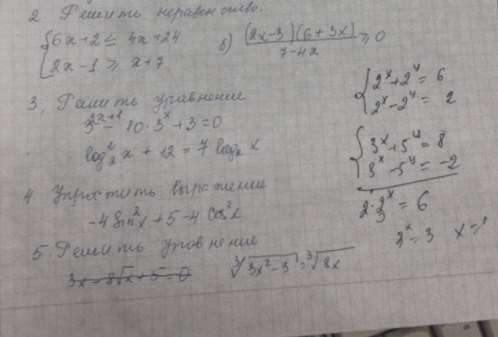 2 Решить неравенство.
{ 6x+2 ≤ 4x+24
{ 2x-1 ≥ x+7
б) (2x-3)(6+3x) / 7-4x ≥ 0
3. Решить уравнение
3^(2x+1) - 10·3^x + 3 = 0
log₂² x + 12 = 7 log₂ x
4 Упростить выражение
-4 sin²x + 5 - 4 cos²x
5. Решить уровнение
3x - 8√x + 5 = 0
∛(3x²-3) = ∛(8x)
{ 2^x + 2^y = 6
{ 2^x - 2^y = 2
{ 3^x + 5^y = 8
{ 3^x - 5^y = -2
2·3^x = 6
3^x = 3 x = 1